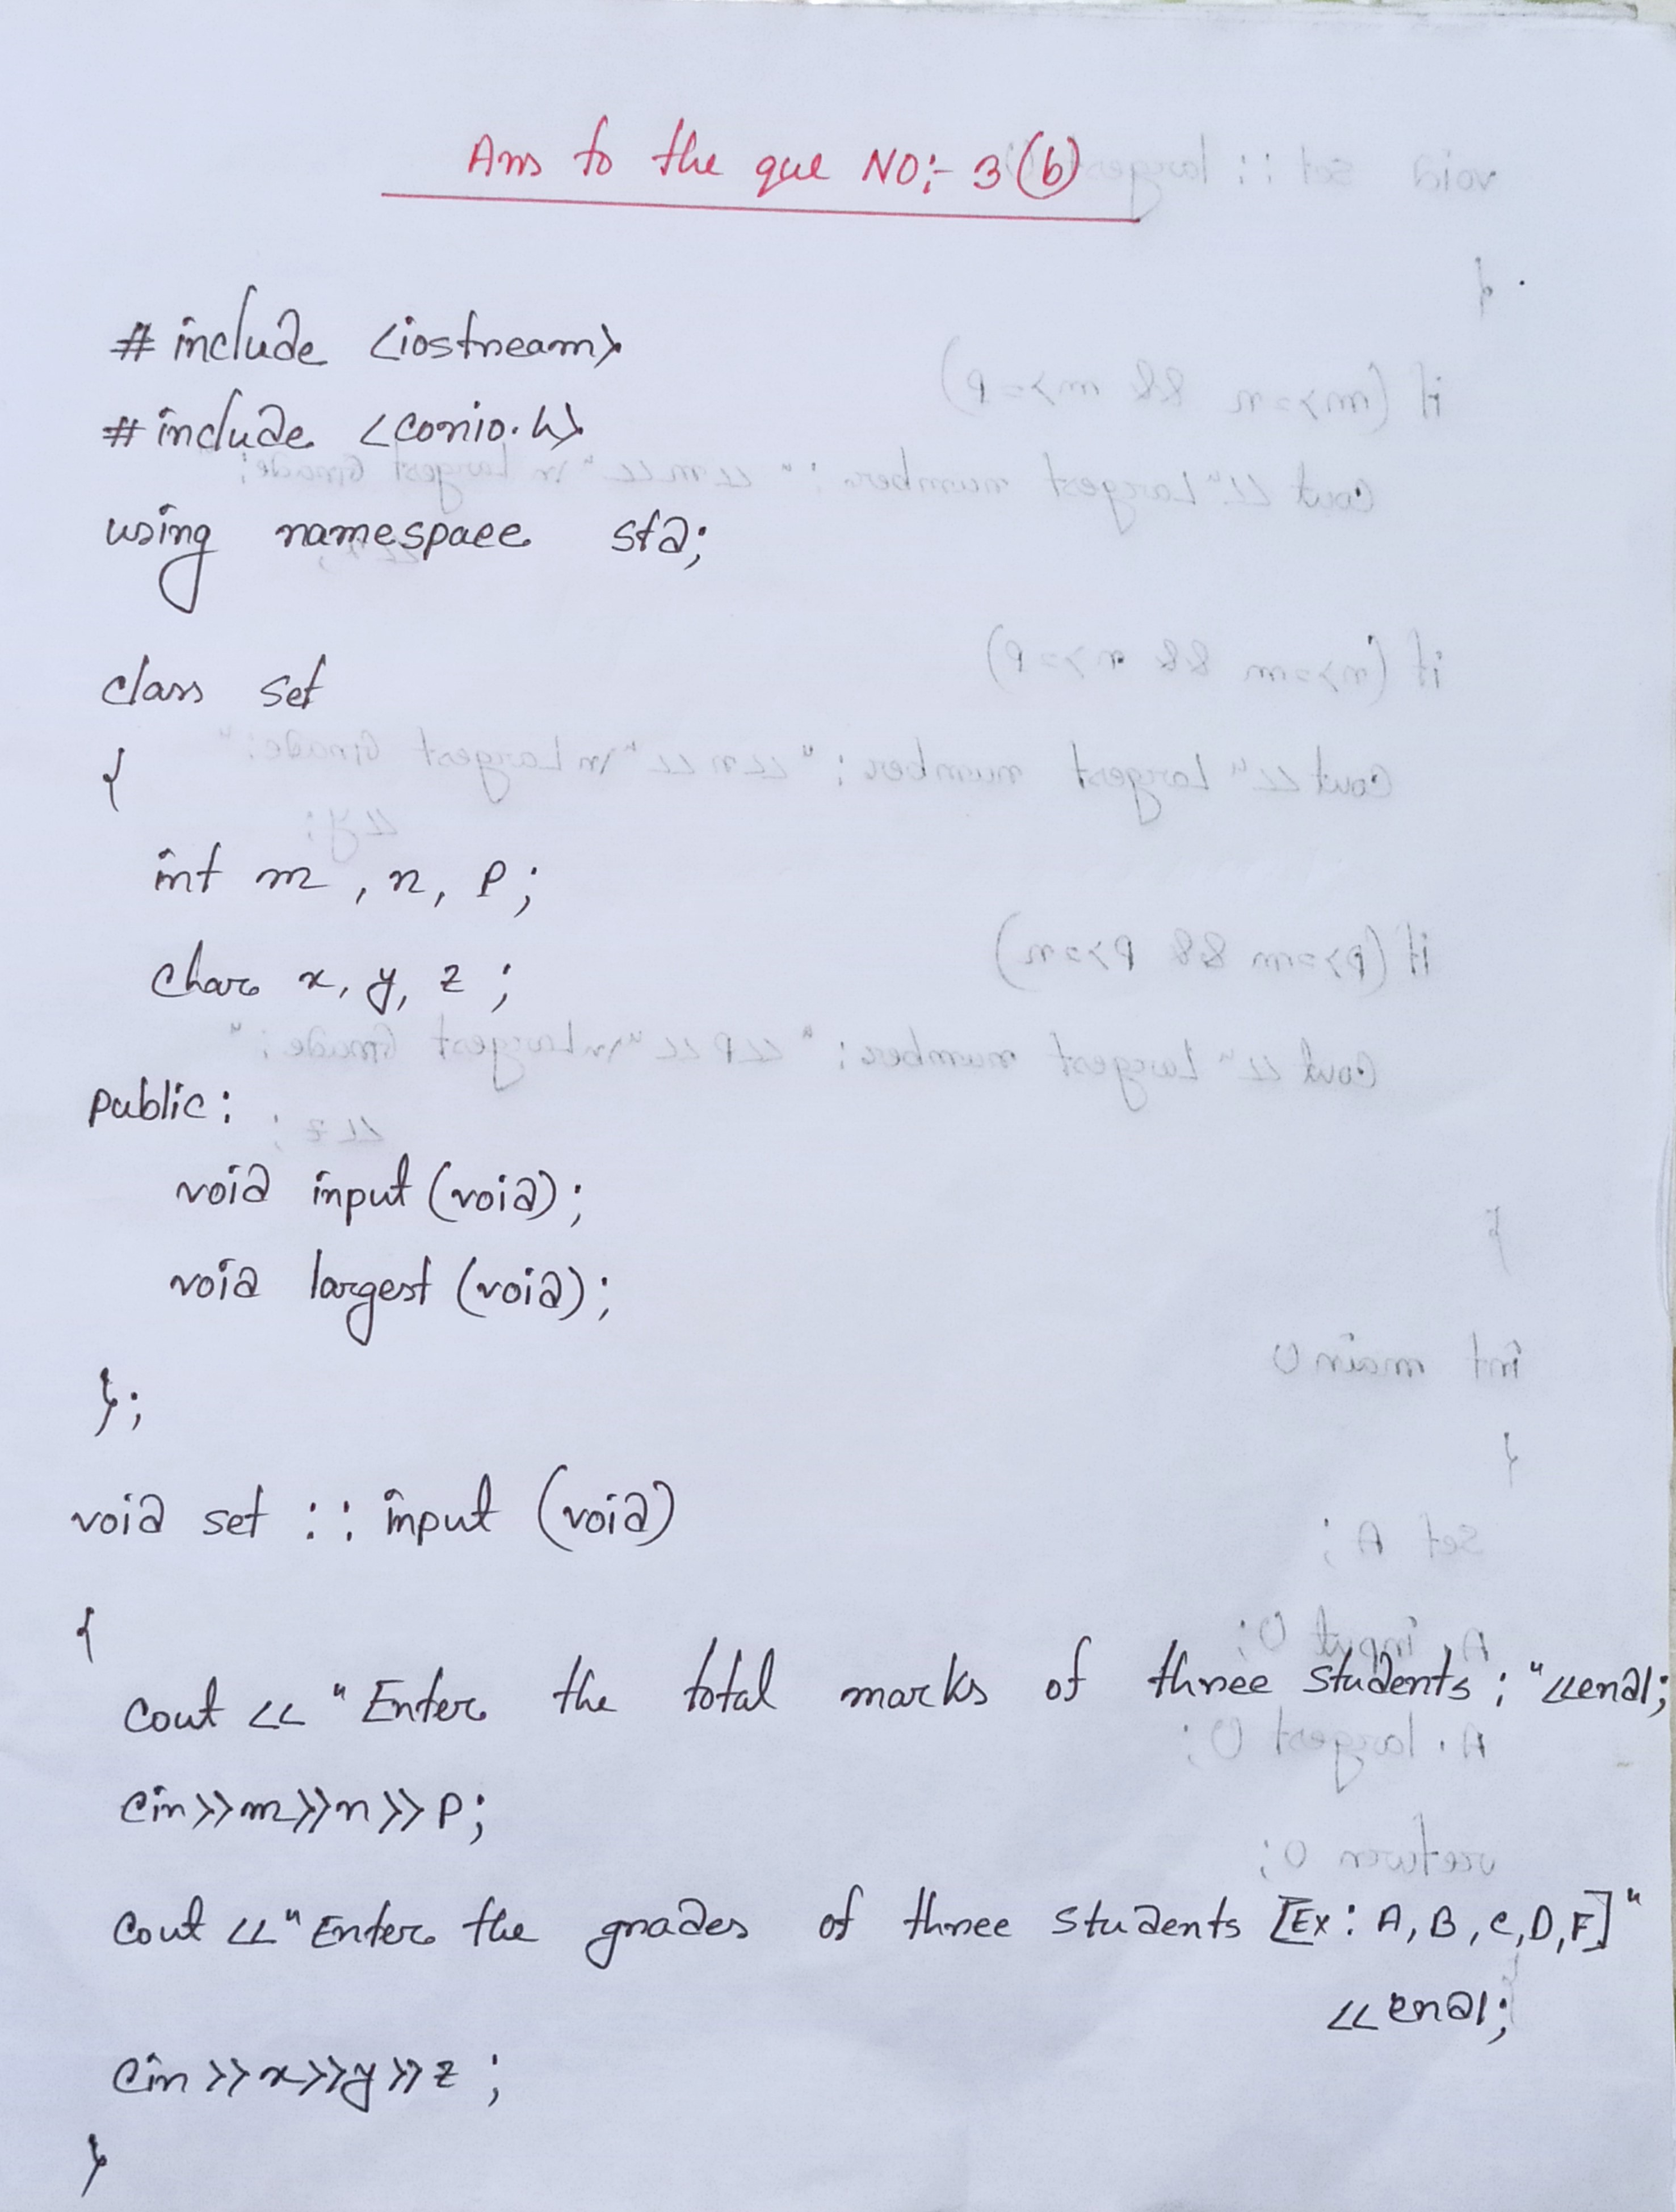 Ans to the que NO:- 3(b)
#include <iostream>
#include <conio.h>
using namespace std;
class set
{
int m, n, P;
char x, y, z;
public:
void input (void);
void largest (void);
};
void set :: input (void)
{
cout << "Enter the total marks of three students: "<<endl;
cin>>m>>n>>P;
cout <<"Enter the grades of three students [Ex: A, B, C, D, F]"
<<endl;
cin>>x>>y>>z;
}